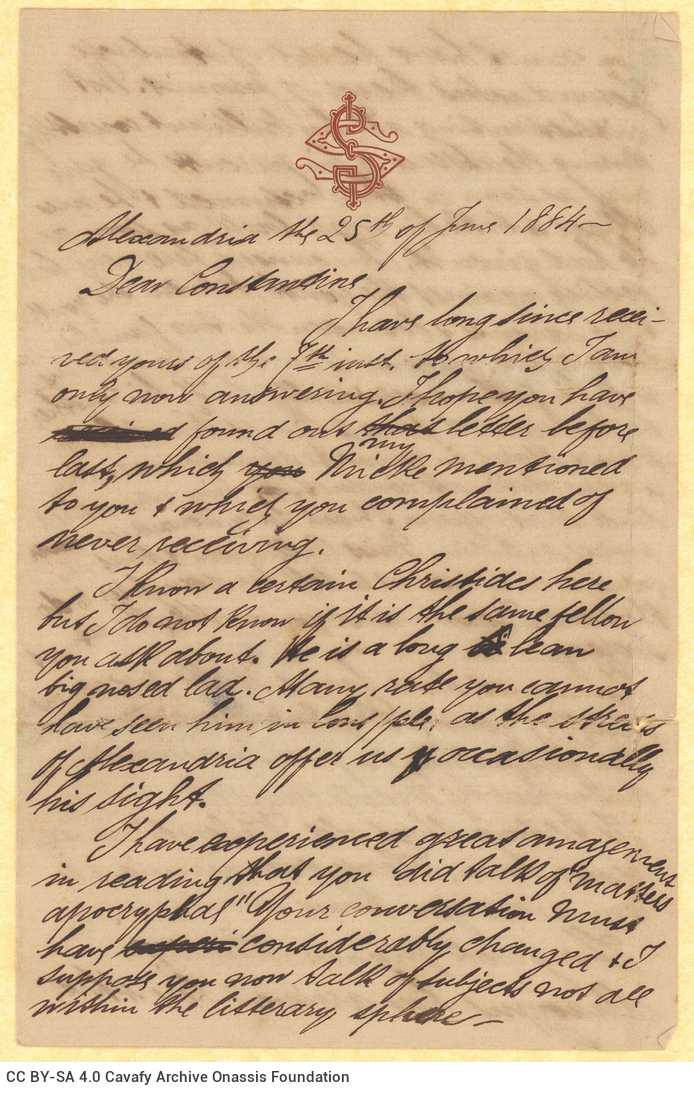 Alexandria the 25th of June 1884—
Dear Constantine
I have long since recei-
ved yours of the 7th inst. to which I am
only now answering. I hope you have
found our that letter before
last, which you my Micke mentioned
to you & which you complained of
never receiving.
I know a certain Christides here
but I do not know if it is the same fellow
you ask about. He is a long lean
big nosed lad. At any rate you cannot
have seen him in Const/ple, as the streets
of Alexandria offer us occasionally
his sight.
I have experienced great amazement
in reading that you did talk of "matters
apocryphal" Your conversation must
have considerably changed & I
suppose you now talk of subjects not all
within the litterary sphere—
CC BY-SA 4.0 Cavafy Archive Onassis Foundation